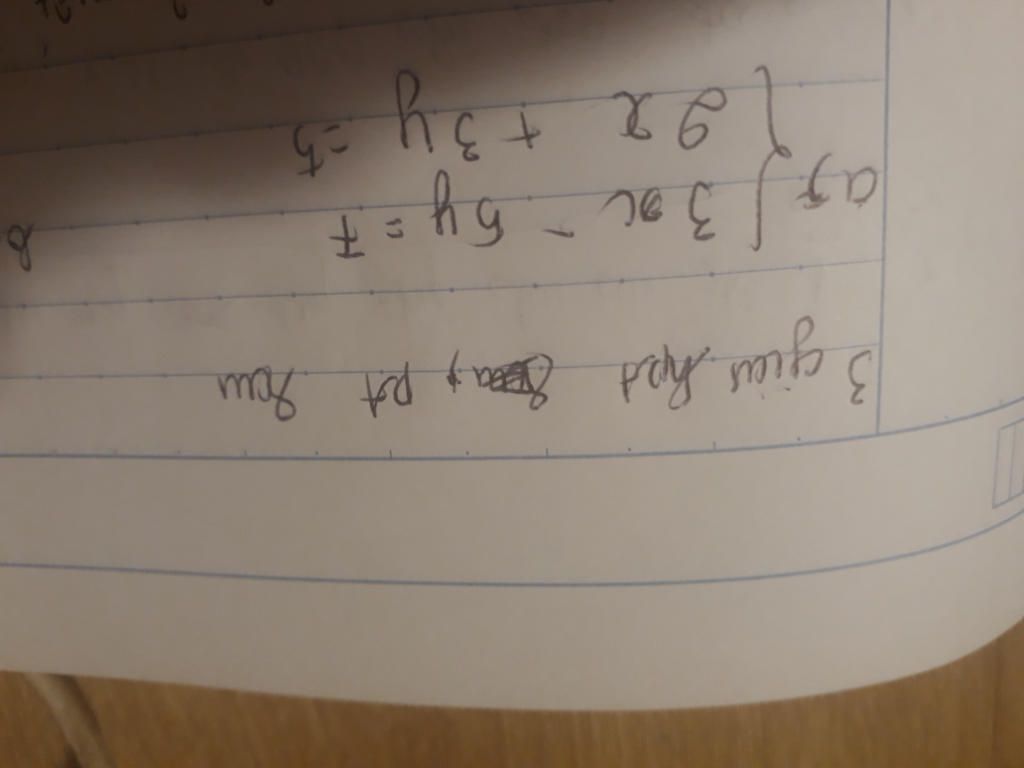 3 giai hpt, pt sau
a, { 3x - 5y = 7
{ 2x + 3y = 5